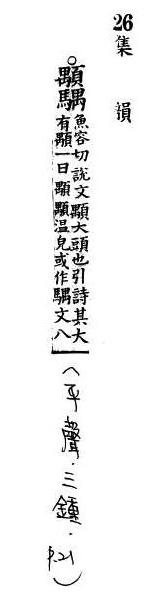 26 集韻
○顒
魚容切說文顒大頭也引詩其大
有顒一曰顒顒温皃或作 文八
(平聲.三鍾.p.21)